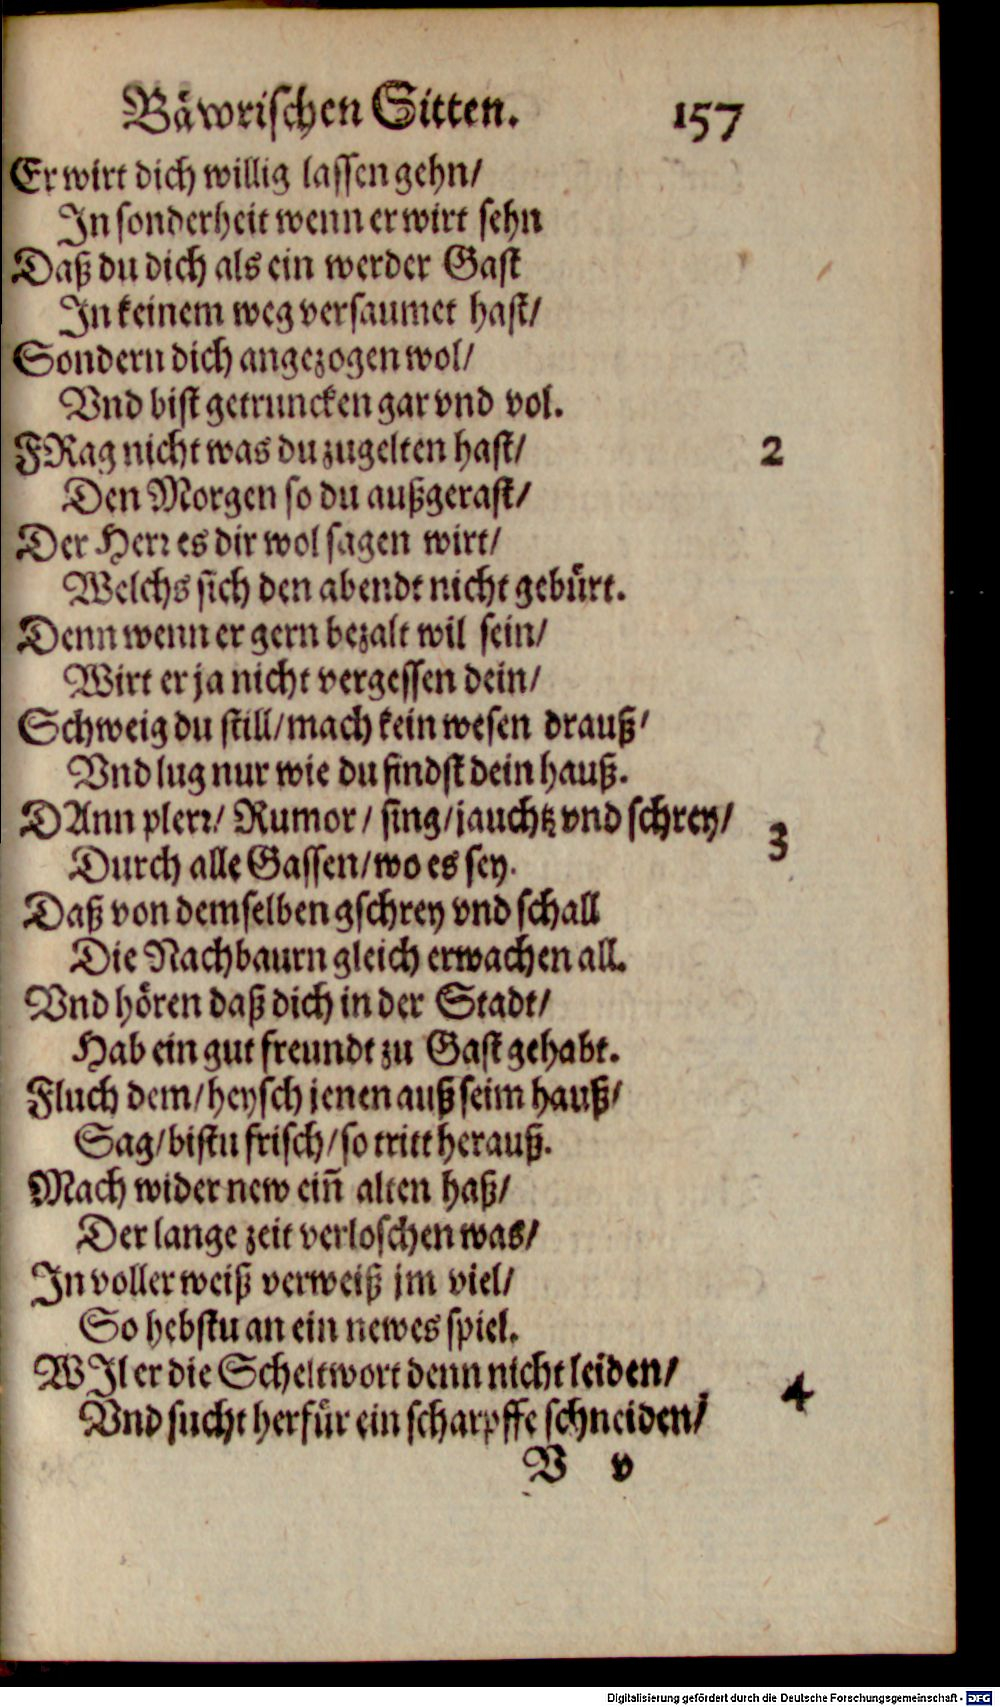 Bäwrischen Sitten. 157
Er wirt dich willig lassen gehn/
In sonderheit wenn er wirt sehn
Daß du dich als ein werder Gast
In keinem weg versaumet hast/
Sondern dich angezogen wol/
Vnd bist getruncken gar vnd vol.
FRag nicht was du zugelten hast/ 2
Den Morgen so du außgerast/
Der Herr es dir wol sagen wirt/
Welchs sich den abendt nicht gebürt.
Denn wenn er gern bezalt wil sein/
Wirt er ja nicht vergessen dein/
Schweig du still/ mach kein wesen drauß/
Vnd lug nur wie du findst dein hauß.
DAnn plerr/ Rumor/ sing/ jauchtz vnd schrey/ 3
Durch alle Gassen/ wo es sey.
Daß von demselben gschrey vnd schall
Die Nachbaurn gleich erwachen all.
Vnd hören daß dich in der Stadt/
Hab ein gut freundt zu Gast gehabt.
Fluch dem/ heysch jenen auß seim hauß/
Sag/ bistu frisch/ so tritt herauß.
Mach wider new ein̄ alten haß/
Der lange zeit verloschen was/
In voller weiß verweiß jm viel/
So hebstu an ein newes spiel.
WJl er die Scheltwort denn nicht leiden/ 4
Vnd sucht herfür ein scharpffe schneiden/
V v
Digitalisierung gefördert durch die Deutsche Forschungsgemeinschaft - DFG